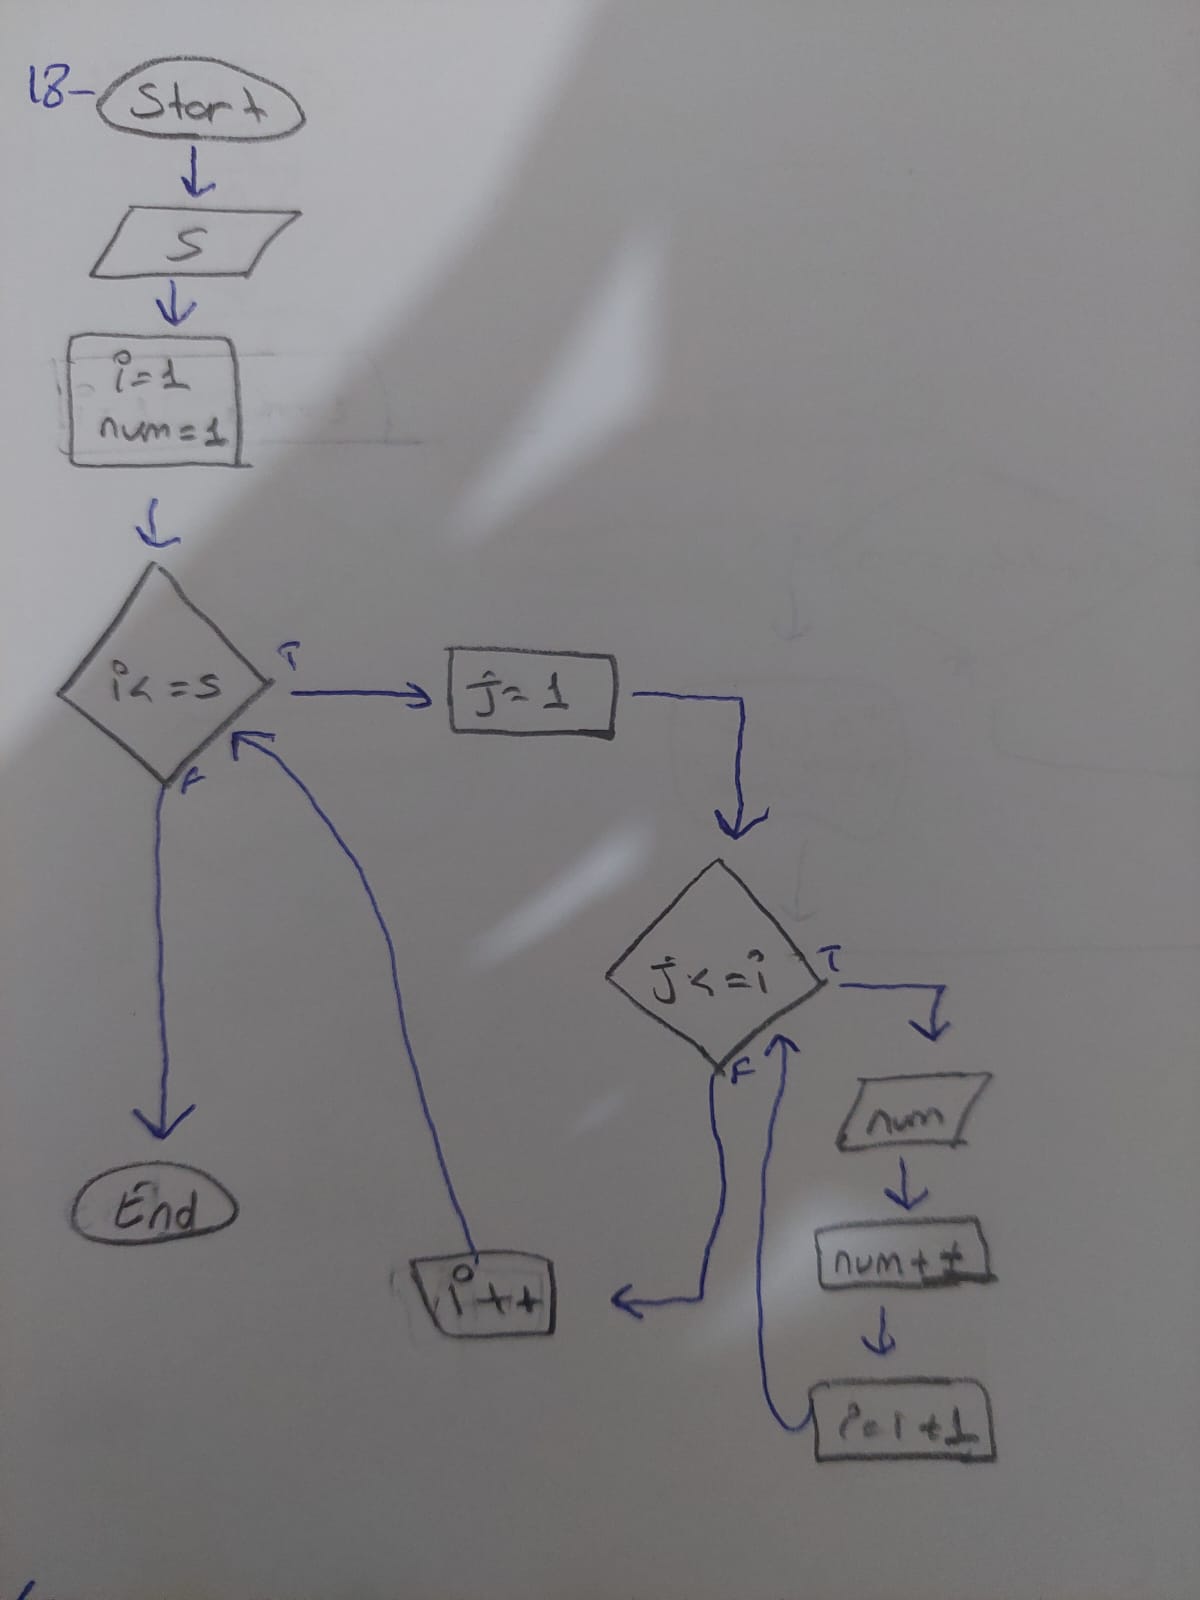 18- Start
S
i=1
num=1
i<=s
T
j=1
F
j<=i
T
F
num
num++
i=i+1
i++
End